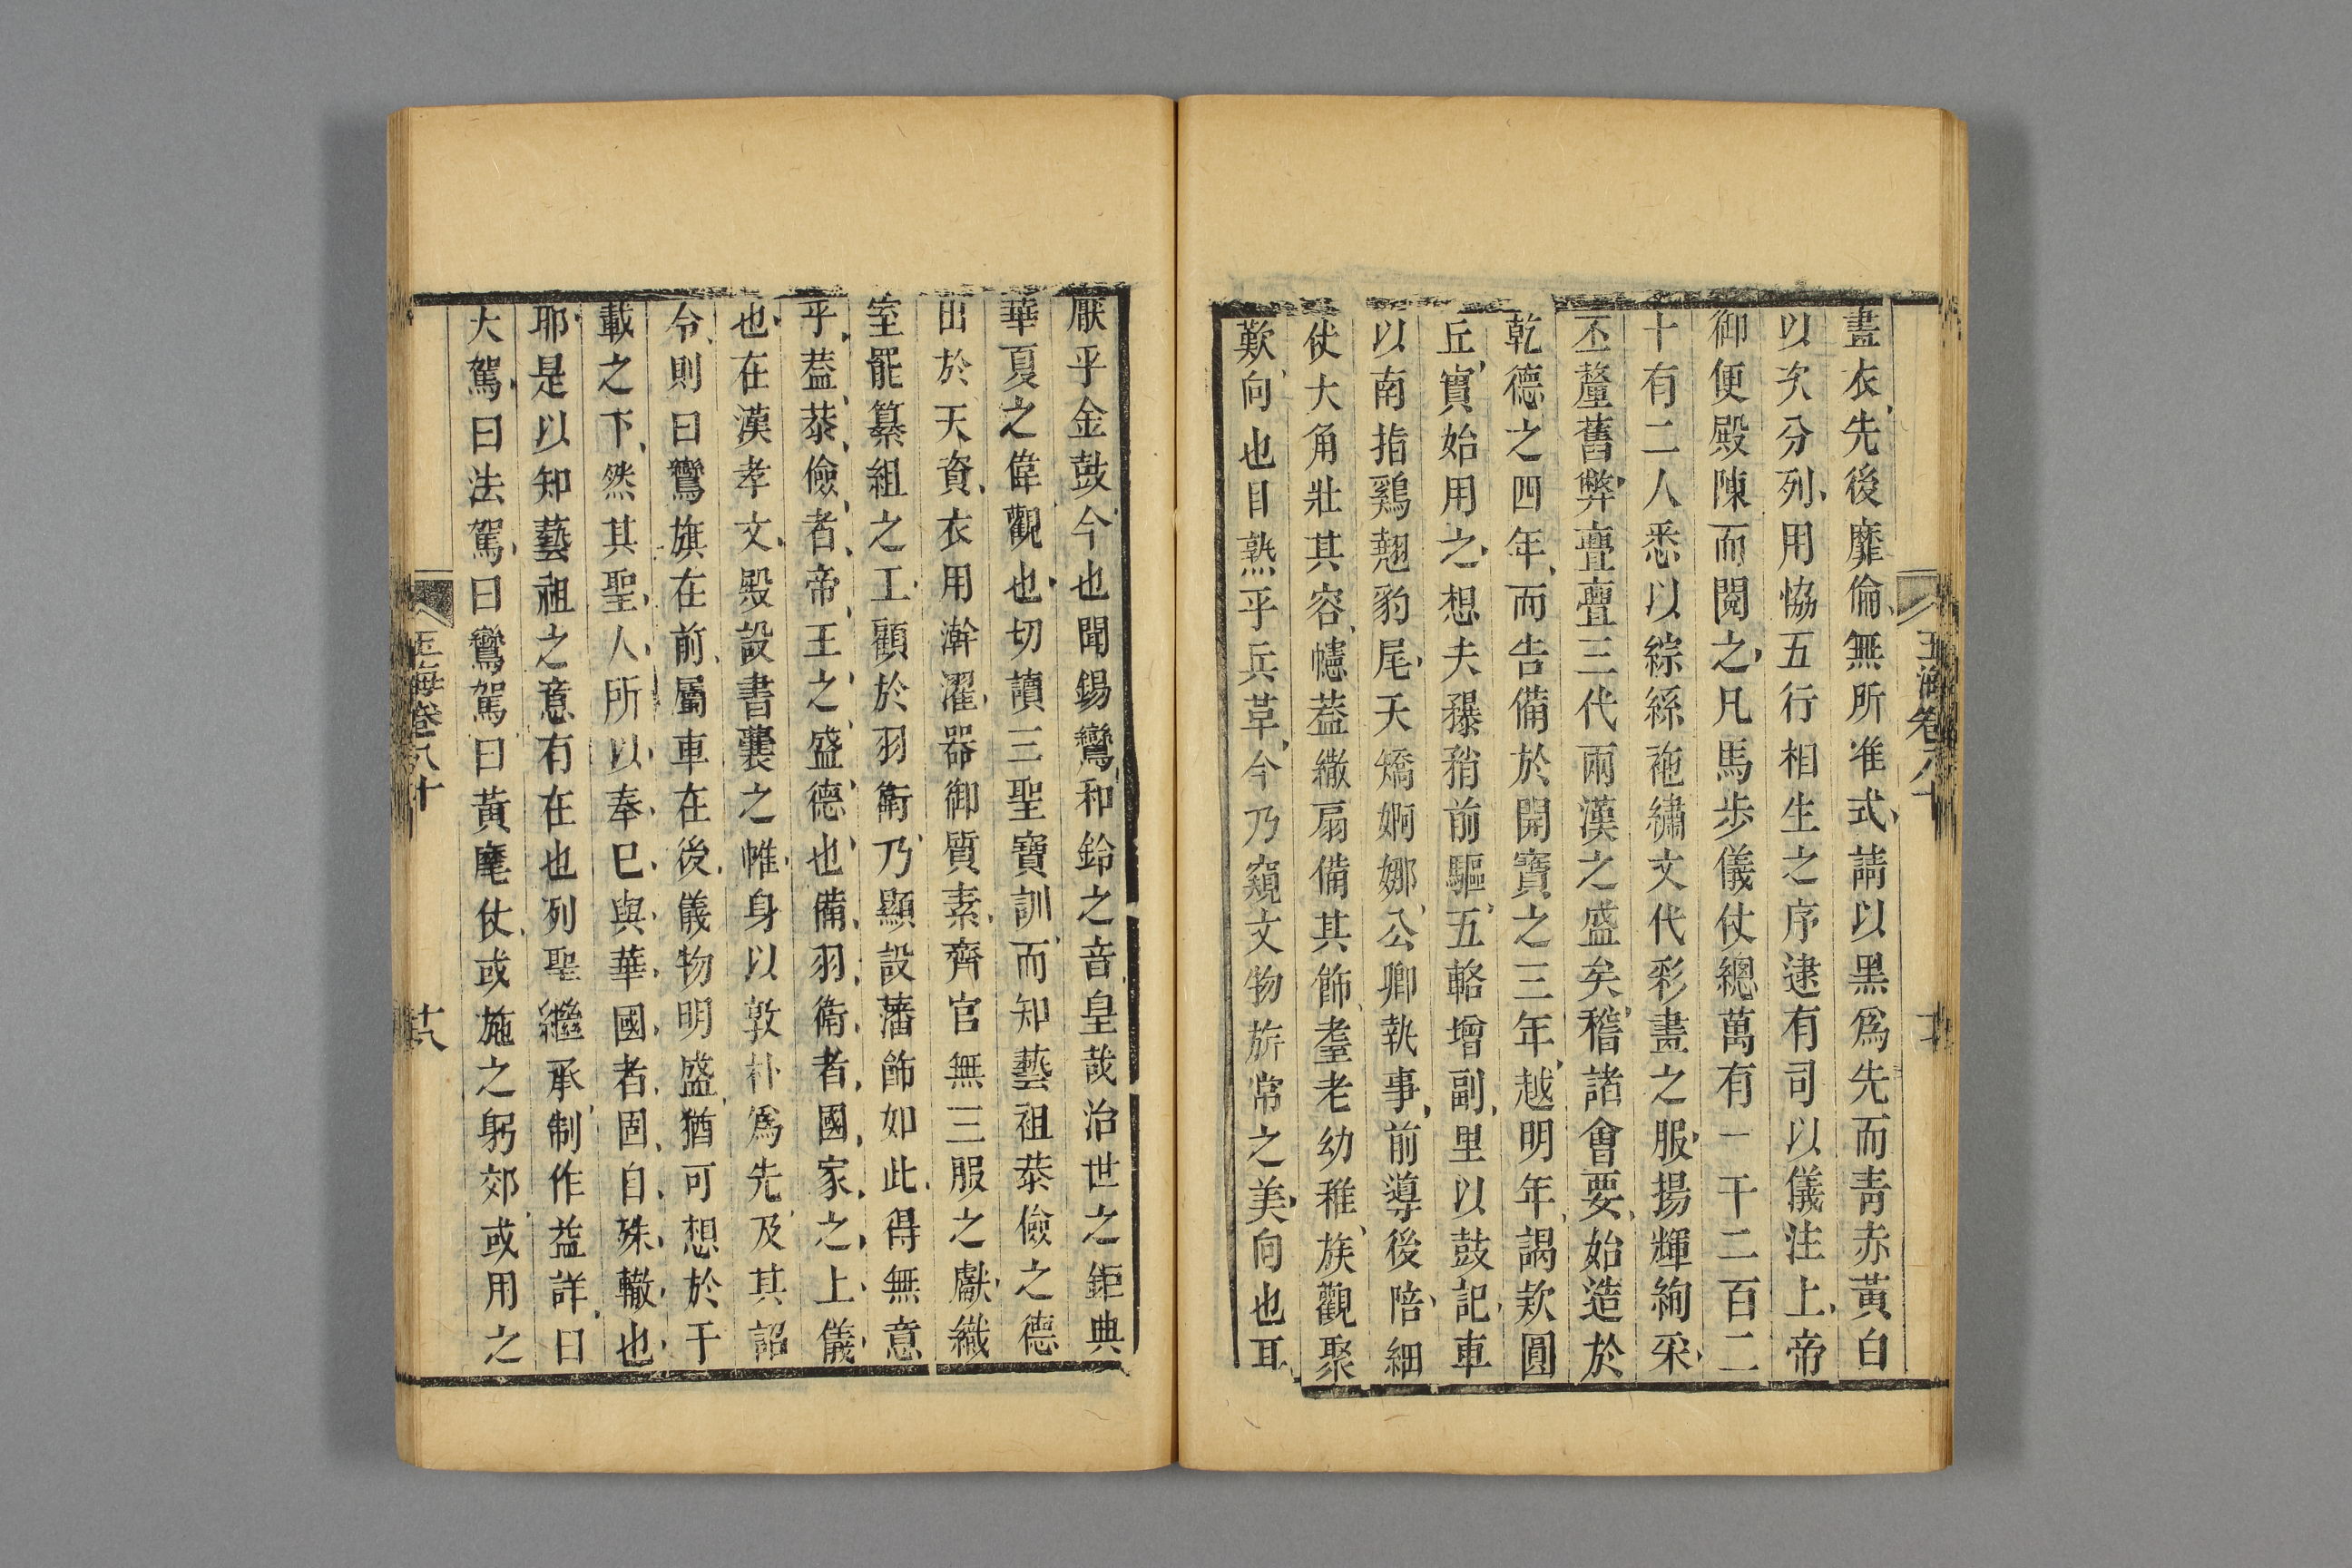 畫衣先後靡倫無所准式請以黑爲先而青赤黃白
以次分列用恊五行相生之序逮有司以儀注上帝
御便殿陳而閱之凡馬步儀仗總萬有一千二百二
十有二人悉以綜絲袍繡文代彩畫之服揚輝絢采
丕釐舊弊亹亹三代兩漢之盛矣稽諸會要始造於
乾德之四年而告備於開寶之三年越明年謁款圓
丘實始用之想夫㬥矟前驅五輅增副里以鼓記車
以南指鷄翹豹尾夭矯婀娜公卿執事前導後陪細
仗大角壯其容幰葢繖扇備其飾耋老幼稚族觀聚
歎向也目熟乎兵革今乃窺文物旂常之美向也耳
玉海卷八十
厭乎金鼓今也聞錫鸞和鈴之音皇哉治世之鉅典
華夏之偉觀也切讀三聖寶訓而知藝祖恭儉之德
出於天資衣用澣濯器御質素齊官無三服之獻織
室罷纂組之工顧於羽衛乃顯設藩飾如此得無意
乎葢恭儉者帝王之盛德也備羽衛者國家之上儀
也在漢孝文殿設書囊之帷身以敦朴爲先及其詔
令則曰鸞旗在前屬車在後儀物明盛猶可想於千
載之下然其聖人所以奉已與華國者固自殊轍也
耶是以知藝祖之意有在也列聖繼承制作益詳曰
大駕曰法駕曰鸞駕曰黃麾仗或施之躬郊或用之
玉海卷八十
十八